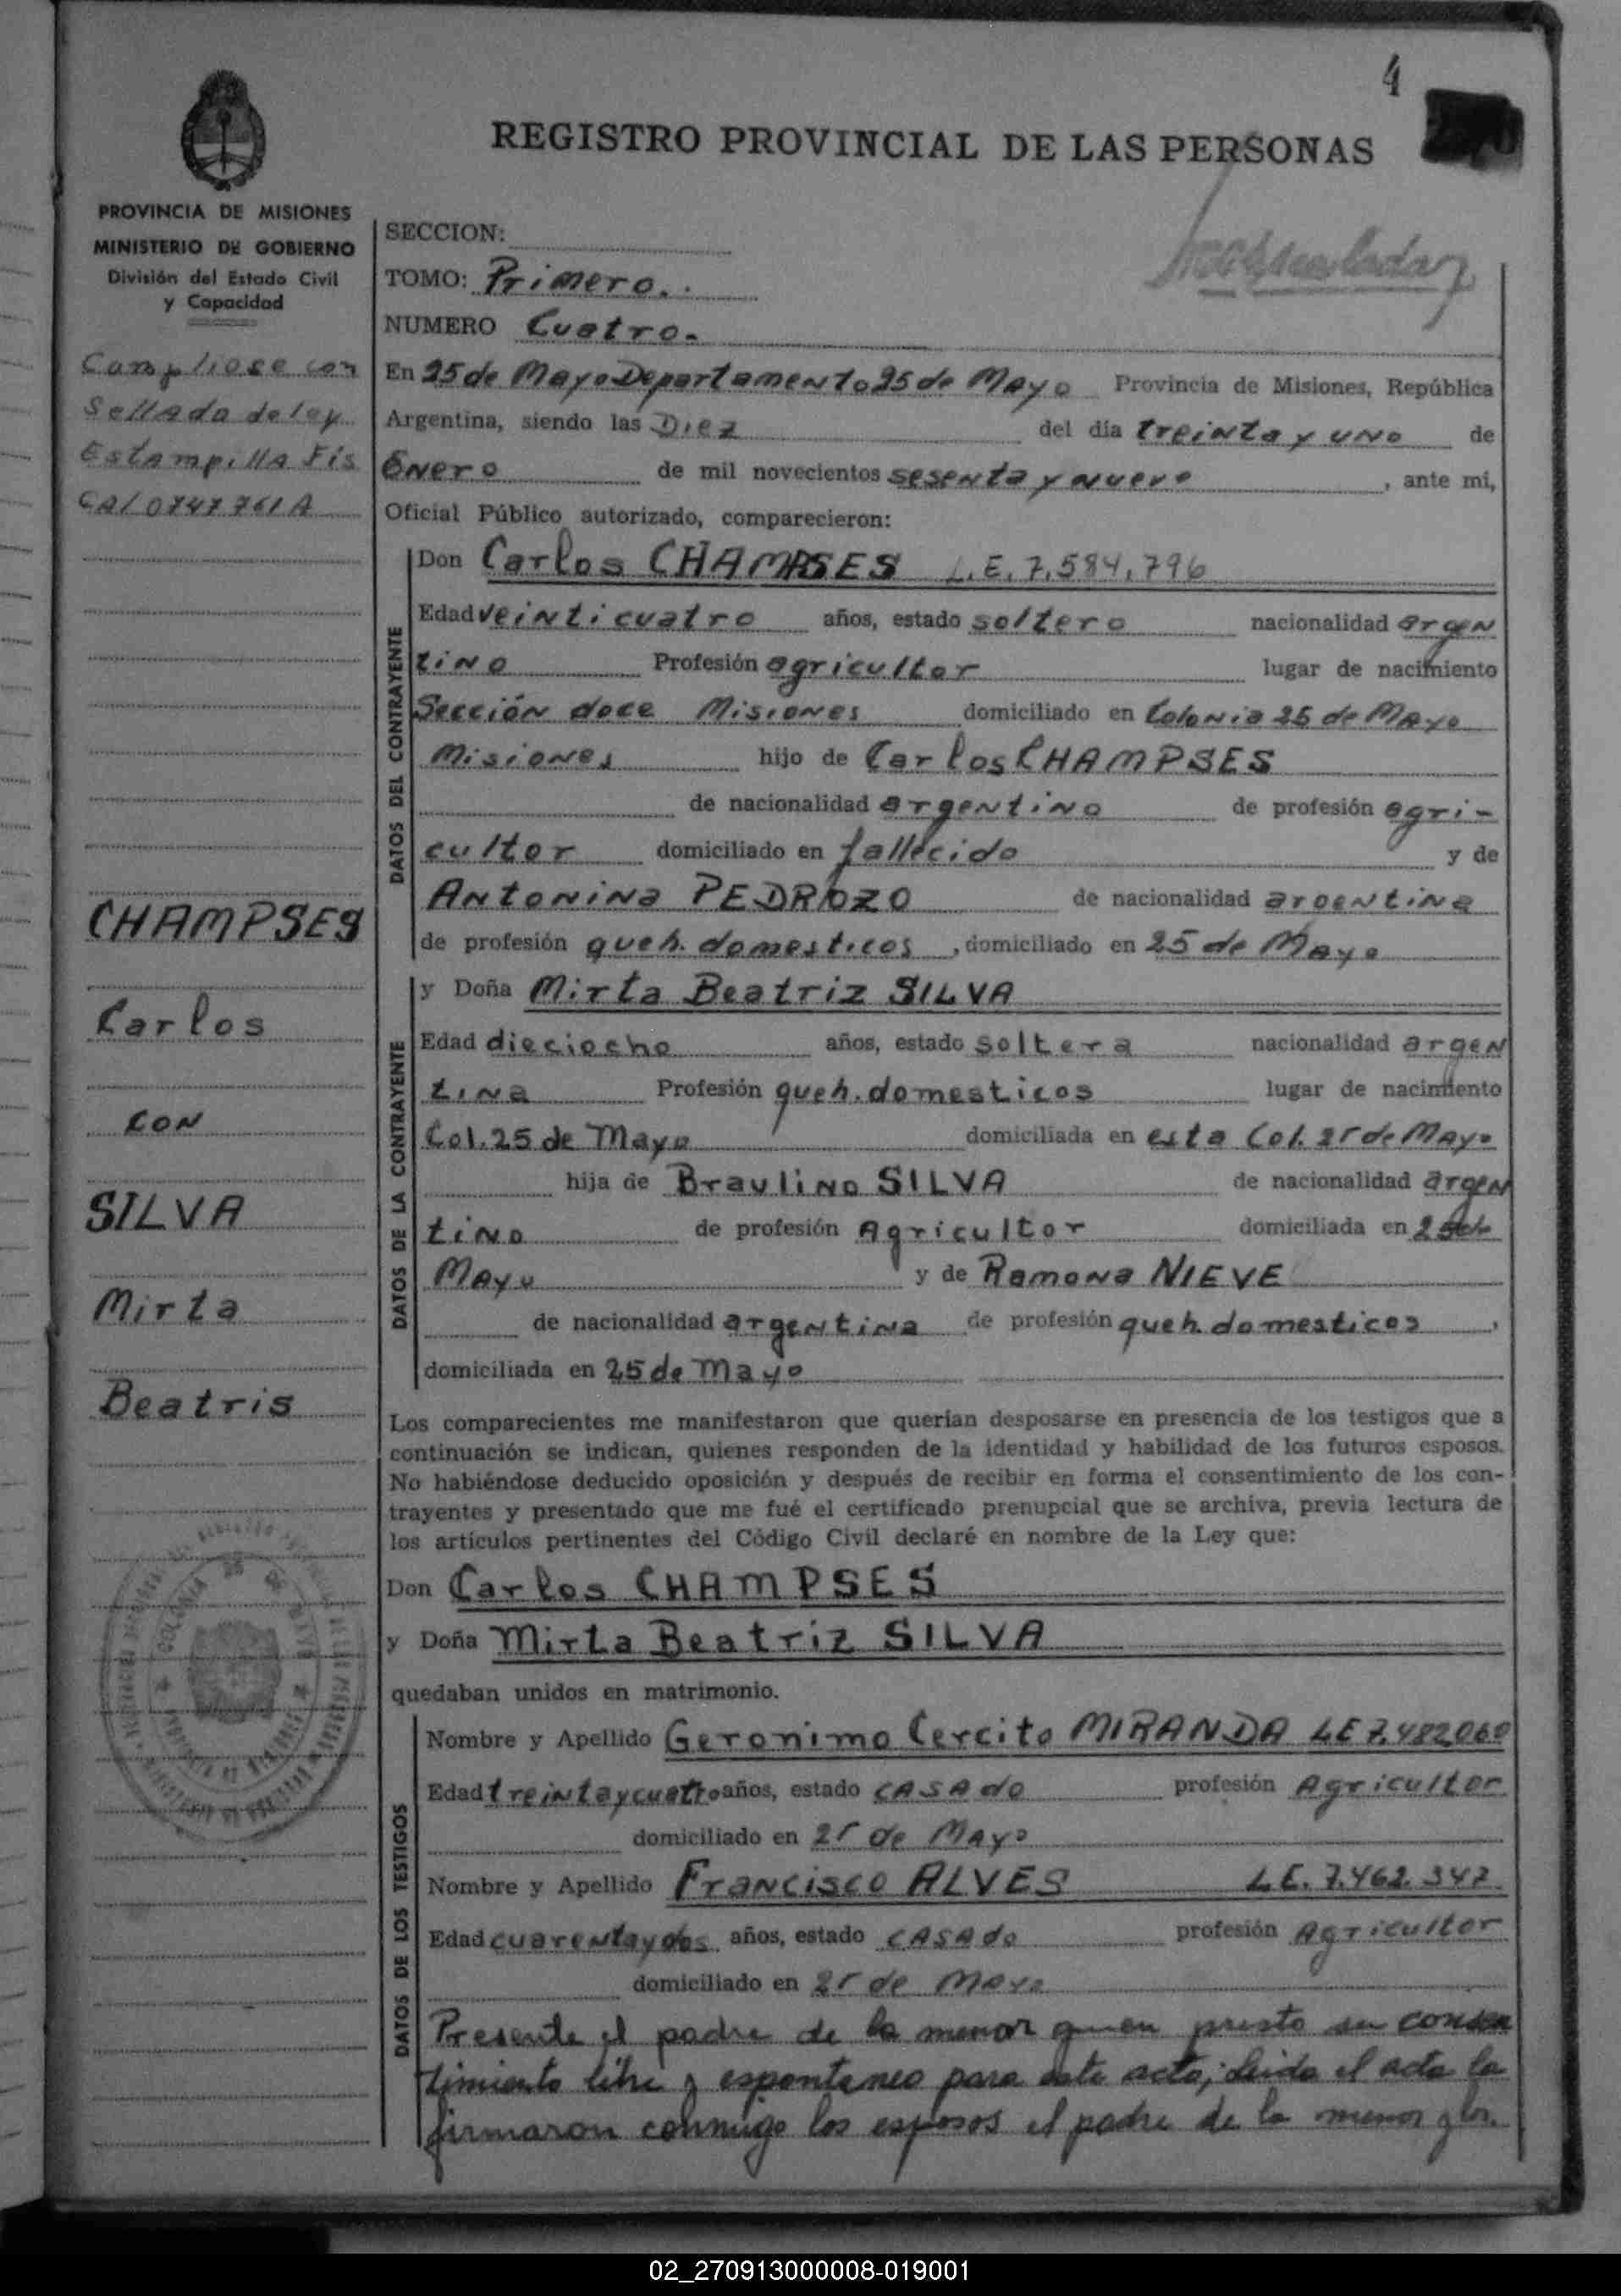 4
REGISTRO PROVINCIAL DE LAS PERSONAS
PROVINCIA DE MISIONES
MINISTERIO DE GOBIERNO
División del Estado Civil
y Capacidad
Cumpliose con
Sellado de ley
Estampilla Fis
cal 0747761A
CHAMPSES
Carlos
CON
SILVA
Mirta
Beatris
SECCION:
TOMO: Primero.
NUMERO Cuatro.
En 25 de Mayo Departamento 25 de Mayo Provincia de Misiones, República
Argentina, siendo las Diez del día treinta y uno de
Enero de mil novecientos sesenta y nueve, ante mí,
Oficial Público autorizado, comparecieron:
DATOS DEL CONTRAYENTE
Don Carlos CHAMPSES L.E. 7.584.796
Edad veinticuatro años, estado soltero nacionalidad argen
tino Profesión agricultor lugar de nacimiento
Sección doce Misiones domiciliado en Colonia 25 de Mayo
Misiones hijo de Carlos CHAMPSES
de nacionalidad argentino de profesión agri-
cultor domiciliado en fallecido y de
Antonina PEDROZO de nacionalidad argentina
de profesión queh. domesticos, domiciliado en 25 de Mayo
DATOS DE LA CONTRAYENTE
y Doña Mirta Beatriz SILVA
Edad dieciocho años, estado soltera nacionalidad argen
tina Profesión queh. domesticos lugar de nacimiento
Col. 25 de Mayo domiciliada en esta Col. 25 de Mayo
hija de Braulino SILVA de nacionalidad argen
tino de profesión Agricultor domiciliada en 25 de
Mayo y de Ramona NIEVE
de nacionalidad argentina de profesión queh. domesticos,
domiciliada en 25 de Mayo
Los comparecientes me manifestaron que querían desposarse en presencia de los testigos que a
continuación se indican, quienes responden de la identidad y habilidad de los futuros esposos.
No habiéndose deducido oposición y después de recibir en forma el consentimiento de los con-
trayentes y presentado que me fué el certificado prenupcial que se archiva, previa lectura de
los artículos pertinentes del Código Civil declaré en nombre de la Ley que:
Don Carlos CHAMPSES
y Doña Mirta Beatriz SILVA
quedaban unidos en matrimonio.
DATOS DE LOS TESTIGOS
Nombre y Apellido Geronimo Cercito MIRANDA LE 7.482.060
Edad treintaycuatro años, estado CASADO profesión Agricultor
domiciliado en 25 de Mayo
Nombre y Apellido Francisco ALVES LE. 7.462.347
Edad cuarentaydos años, estado CASADO profesión Agricultor
domiciliado en 25 de Mayo
Presente el padre de la menor quien presto su consen
timiento libre y espontaneo para este acto; leida el acta la
firmaron conmigo los esposos el padre de la menor y los.
02_270913000008-019001